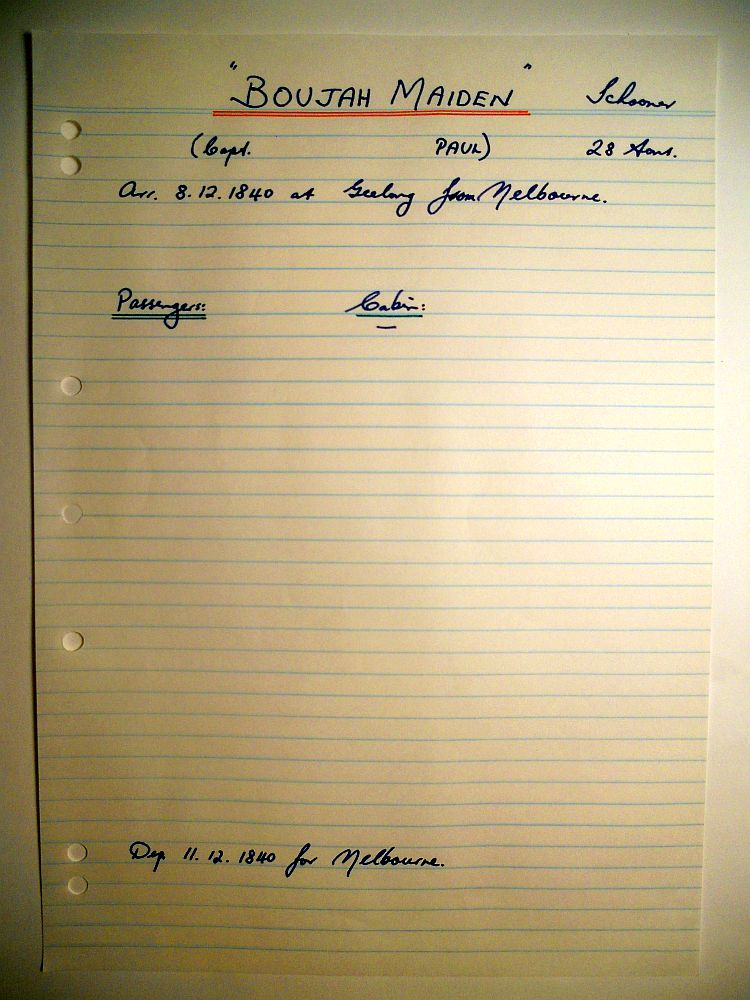 "BOUJAH MAIDEN" Schooner
(Capt. PAUL) 28 tons.
Arr. 8.12.1840 at Geelong from Melbourne.
Passengers: Cabin:
—
Dep. 11.12.1840 for Melbourne.